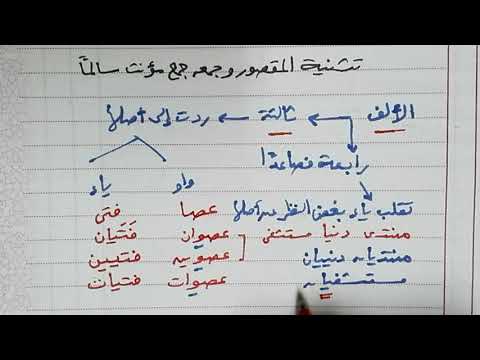 تثنية المقصور وجمعه جمع مؤنث سالمًا
الألف ← ثالثة ← ردت إلى أصلها
رابعة فصاعدًا
واو ياء
تقلب ياء بغض النظر عن أصلها
عصا فتى
منتدى دنيا مستشفى
عصوان فَتَيان
منتديان دنييان
عصوين فتيين
مستشفيان
عصوات فتيات